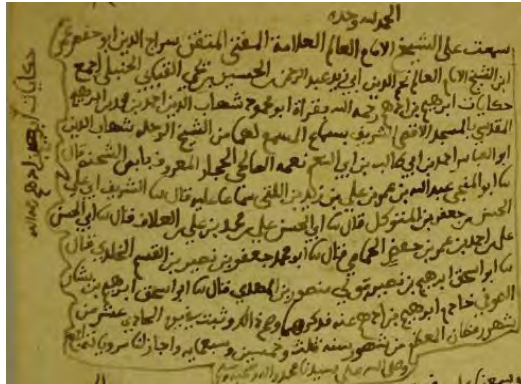 الحمد لله وحده
سمعت على الشيخ الامام العالم العلامة المفتي المتفنن سراج الدين ابو حفص عمر
ابن الشيخ الامام العالم نجم الدين ابي زيد عبد الرحمن بن الحسين بن يحيى القبابي الحنبلي جميع
حكايات ابرهيم بن ادهم رحمه الله بقراة ابو محمود شهاب الدين احمد بن محمد بن ابرهيم
المقدسي بالمسجد الاقصى الشريف بسماع المسمع لها من الشيخ الرحله شهاب الدين
ابو العباس احمد بن ابي طالب بن ابي النعم نعمه الصالحي الحجار المعروف بابن الشحنه قال
نا ابو المنجى عبد الله بن عمر بن علي بن زيد بن اللتي سماعا عليه قال نا الشريف ابي علي
الحسن بن جعفر بن المتوكل قال نا ابي الحسن علي بن محمد بن علي بن العلاف قال نا ابي الحسن
علي بن احمد بن عمر بن حفص الحمامي قال نا ابو محمد جعفر بن نصير بن القسم الخلدي قال
نا ابو اسحق ابرهيم بن نصر مولى منصور بن المهدي قال نا ابو اسحق ابرهيم بن بشار
الصوفي خادم ابرهيم بن ادهم عنه فذكرهم وصح ذلك وثبت في يوم الحادي عشر من
شهر رمضان المعظم من شهور سنه ثلث وخمسين وسبعمايه واجاز لنا مروياته
وصلى الله على سيدنا محمد واله وصحبه وسلم
حكايات ابرهيم بن ادهم رحمه الله